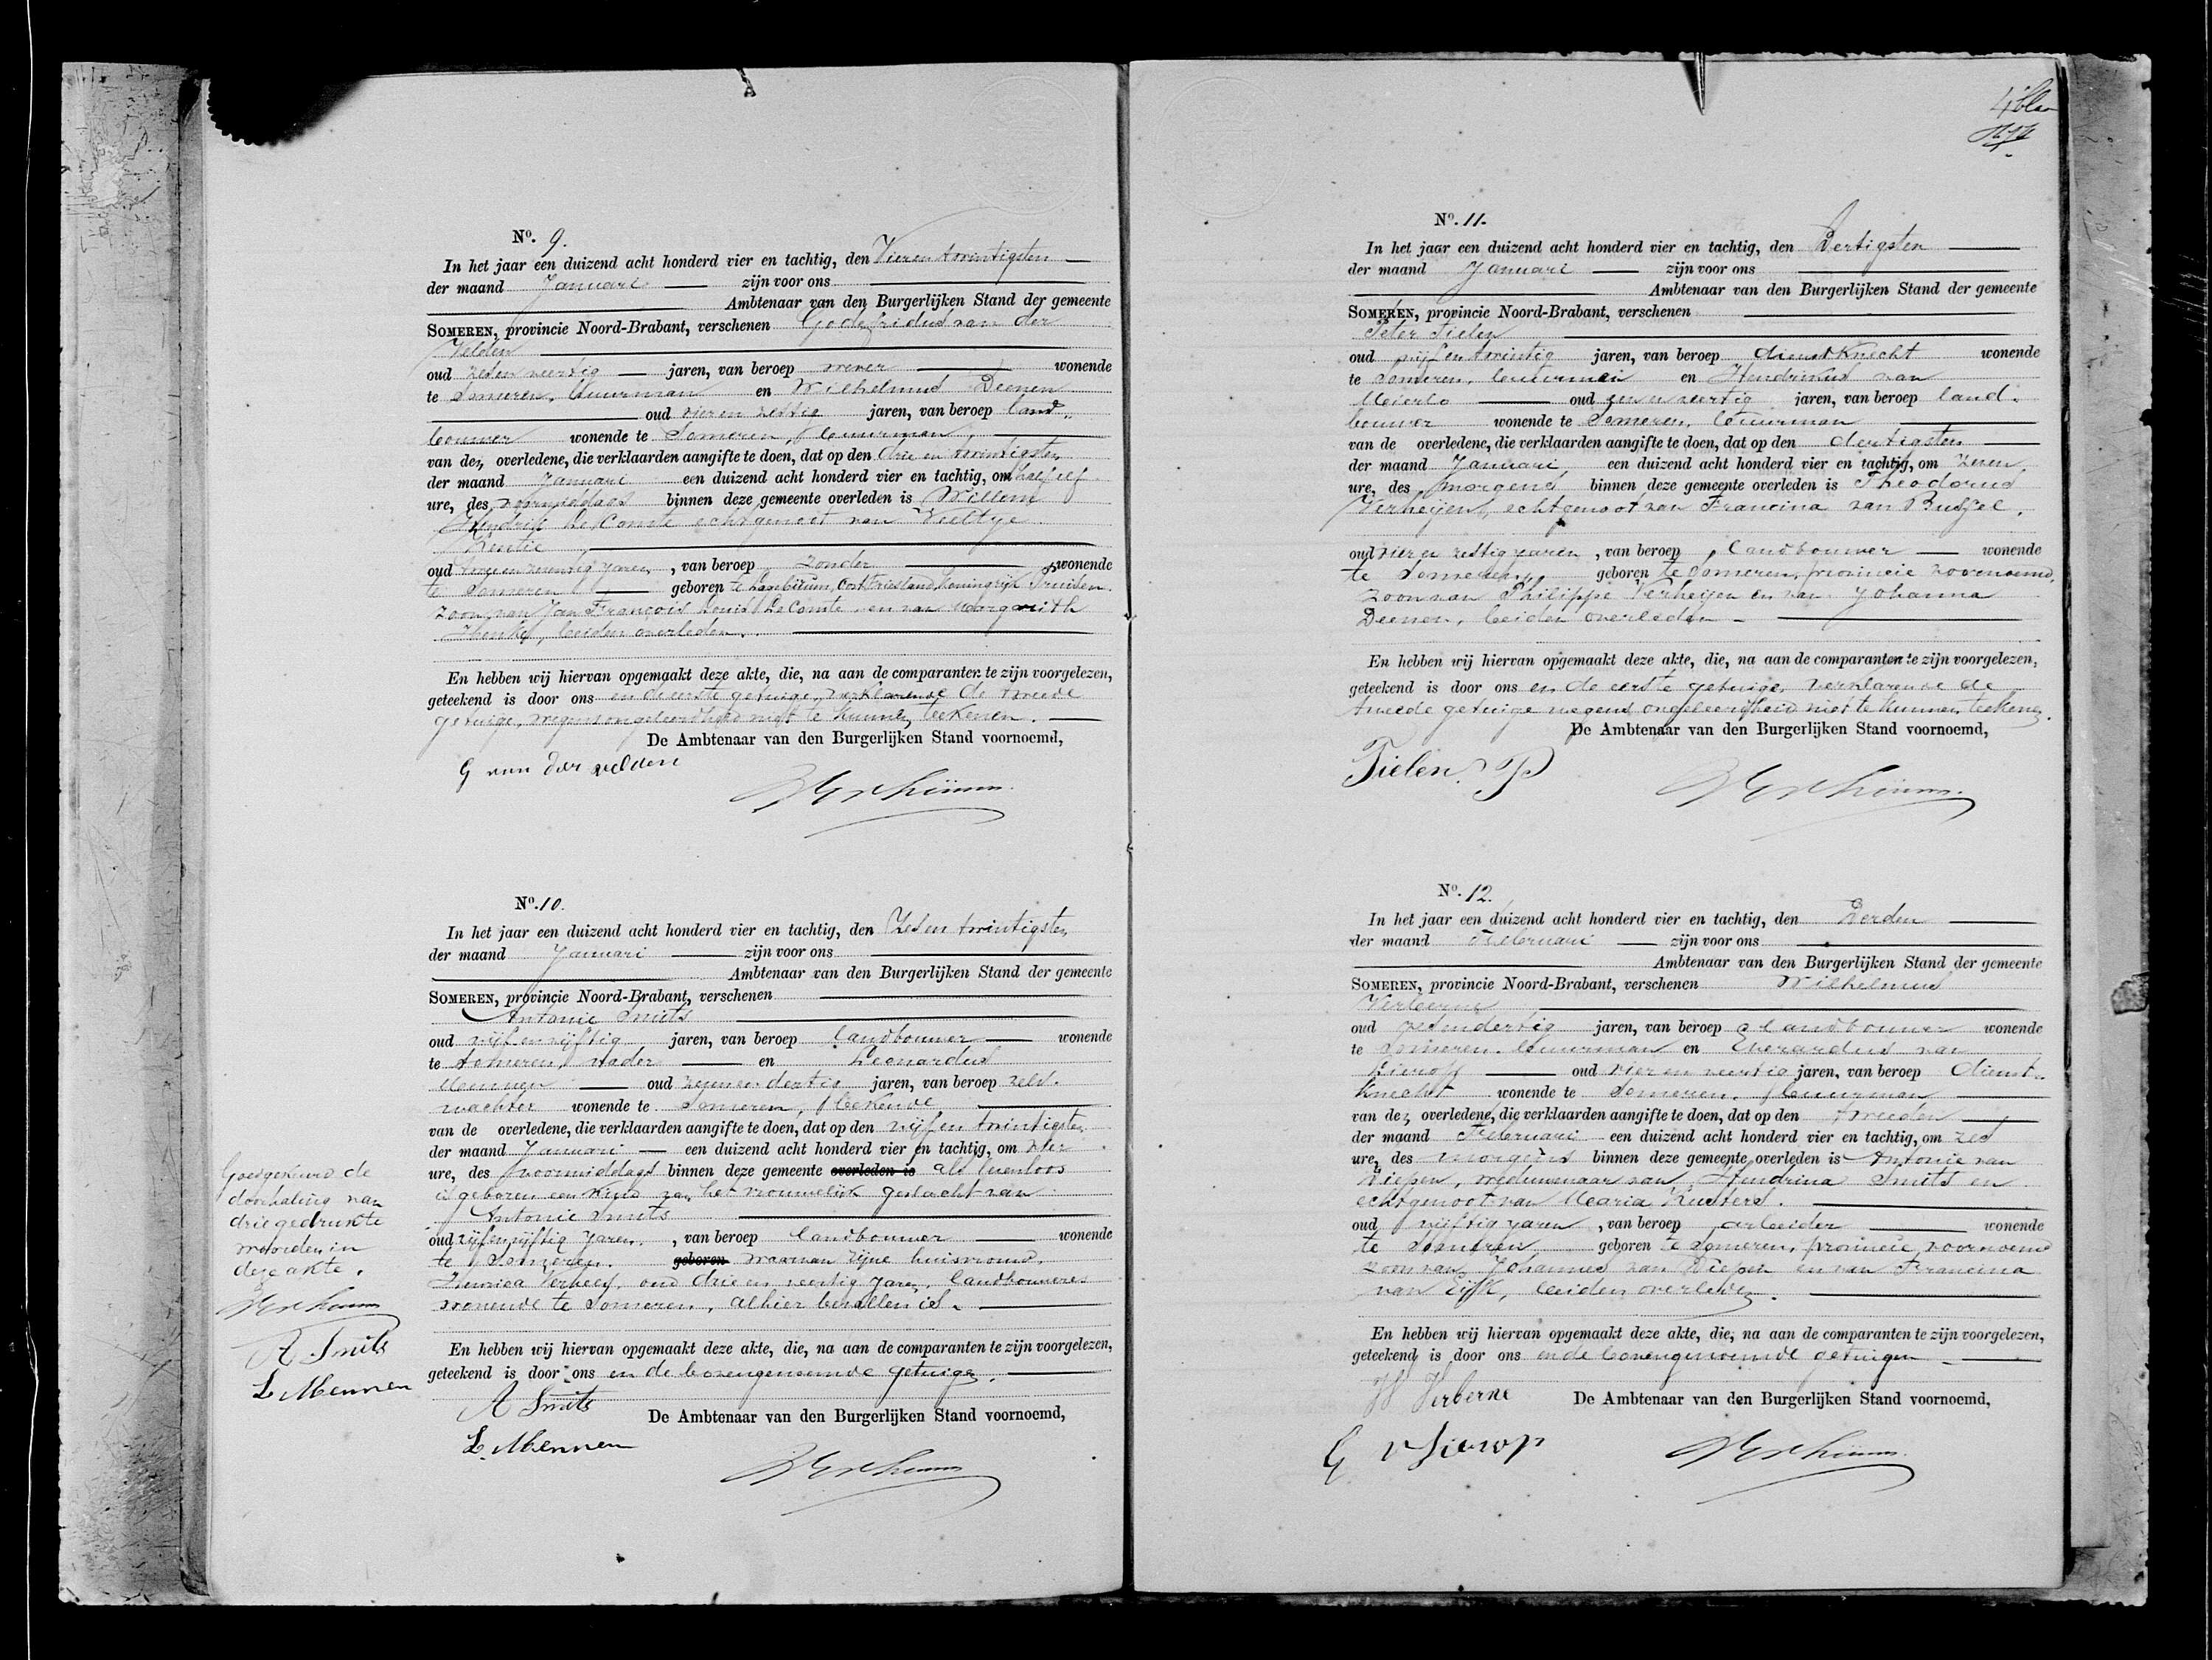 No. 9.
In het jaar een duizend acht honderd vier en tachtig, den Vierentwintigsten
der maand Januari zijn voor ons
Ambtenaar van den Burgerlijken Stand der gemeente
SOMEREN, provincie Noord-Brabant, verschenen Godefridus van der
Velden
oud zesenveertig jaren, van beroep wever wonende
te Someren, buurman en Wilhelmus Deenen
oud vier en zestig jaren, van beroep land-
bouwer wonende te Someren, buurman
van den overledene, die verklaarden aangifte te doen, dat op den drie en twintigsten
der maand Januari een duizend acht honderd vier en tachtig, om half elf
ure, des voormiddags binnen deze gemeente overleden is Willem
Hendrik le Comte echtgenoot van
oud jaren, van beroep zonder wonende
te Someren geboren te Oostfriesland, Koningrijk Pruisen
zoon van Jan François Louis le Comte en van Margarith
beiden overleden.
En hebben wij hiervan opgemaakt deze akte, die, na aan de comparanten te zijn voorgelezen,
geteekend is door ons en de eerste getuige, verklarende de tweede
getuige, wegens ongeleerdheid niet te kunnen teekenen.
De Ambtenaar van den Burgerlijken Stand voornoemd,
G van der velden
No. 10.
In het jaar een duizend acht honderd vier en tachtig, den Zesentwintigsten
der maand Januari zijn voor ons
Ambtenaar van den Burgerlijken Stand der gemeente
SOMEREN, provincie Noord-Brabant, verschenen
Antonie Smits
oud vijfenvijftig jaren, van beroep landbouwer wonende
te Someren vader en Leonardus
Mennen oud zevenendertig jaren, van beroep veld-
wachter wonende te Someren, bekende
van de overledene, die verklaarden aangifte te doen, dat op den vijfentwintigsten
der maand Januari een duizend acht honderd vier en tachtig, om vier
ure, des voormiddags binnen deze gemeente overleden is als levenloos
is geboren een kind van het vrouwelijk geslacht van
Antonie Smits
oud vijfenvijftig jaren, van beroep landbouwer wonende
te Someren. geboren waarvan zijne huisvrouw,
Verhees, oud drie en veertig jaren, landbouweres
wonende te Someren, alhier bevallen is.
En hebben wij hiervan opgemaakt deze akte, die, na aan de comparanten te zijn voorgelezen,
geteekend is door ons en de bovengenoemde getuigen.
A Smits
De Ambtenaar van den Burgerlijken Stand voornoemd,
L. Mennen
Goedgekeurd de
doorhaling van
drie gedrukte
woorden in
deze akte.
A Smits
L Mennen
No. 11.
In het jaar een duizend acht honderd vier en tachtig, den Dertigsten
der maand Januari zijn voor ons
Ambtenaar van den Burgerlijken Stand der gemeente
SOMEREN, provincie Noord-Brabant, verschenen
Peter Tielen
oud vijfentwintig jaren, van beroep dienstknecht wonende
te Someren, buurman en Hendrikus van
Mierlo oud veertig jaren, van beroep land-
bouwer wonende te Someren, buurman
van de overledene, die verklaarden aangifte te doen, dat op den dertigsten
der maand Januari een duizend acht honderd vier en tachtig, om zeven
ure, des morgens binnen deze gemeente overleden is Theodorus
Verheijen, echtgenoot van Francina van Bussel.
oud vier en zestig jaren, van beroep landbouwer wonende
te Someren, geboren te Someren, provincie voornoemd,
zoon van Philippe Verheijen en van Johanna
Deenen, beiden overleden
En hebben wij hiervan opgemaakt deze akte, die, na aan de comparanten te zijn voorgelezen,
geteekend is door ons en de eerste getuige, verklarende de
tweede getuige wegens ongeleerdheid niet te kunnen teekenen.
De Ambtenaar van den Burgerlijken Stand voornoemd,
Tielen. P
No. 12.
In het jaar een duizend acht honderd vier en tachtig, den Derden
der maand Februari zijn voor ons
Ambtenaar van den Burgerlijken Stand der gemeente
SOMEREN, provincie Noord-Brabant, verschenen Wilhelmus
Verberne
oud zesendertig jaren, van beroep landbouwer wonende
te Someren. buurman en Everardus van
oud vier en veertig jaren, van beroep dienst-
knecht wonende te Someren, buurman
van den overledene, die verklaarden aangifte te doen, dat op den tweeden
der maand Februari een duizend acht honderd vier en tachtig, om zes
ure, des morgens binnen deze gemeente overleden is Antonie van
Diepen, weduwenaar van Hendrina Smits en
echtgenoot van Maria Kusters.
oud vijftig jaren, van beroep arbeider wonende
te Someren geboren te Someren, provincie voornoemd
zoon van Johannes van Diepen en van Francina
van Eijk, beiden overleden.
En hebben wij hiervan opgemaakt deze akte, die, na aan de comparanten te zijn voorgelezen,
geteekend is door ons en de bovengenoemde getuigen
W Verberne
De Ambtenaar van den Burgerlijken Stand voornoemd,